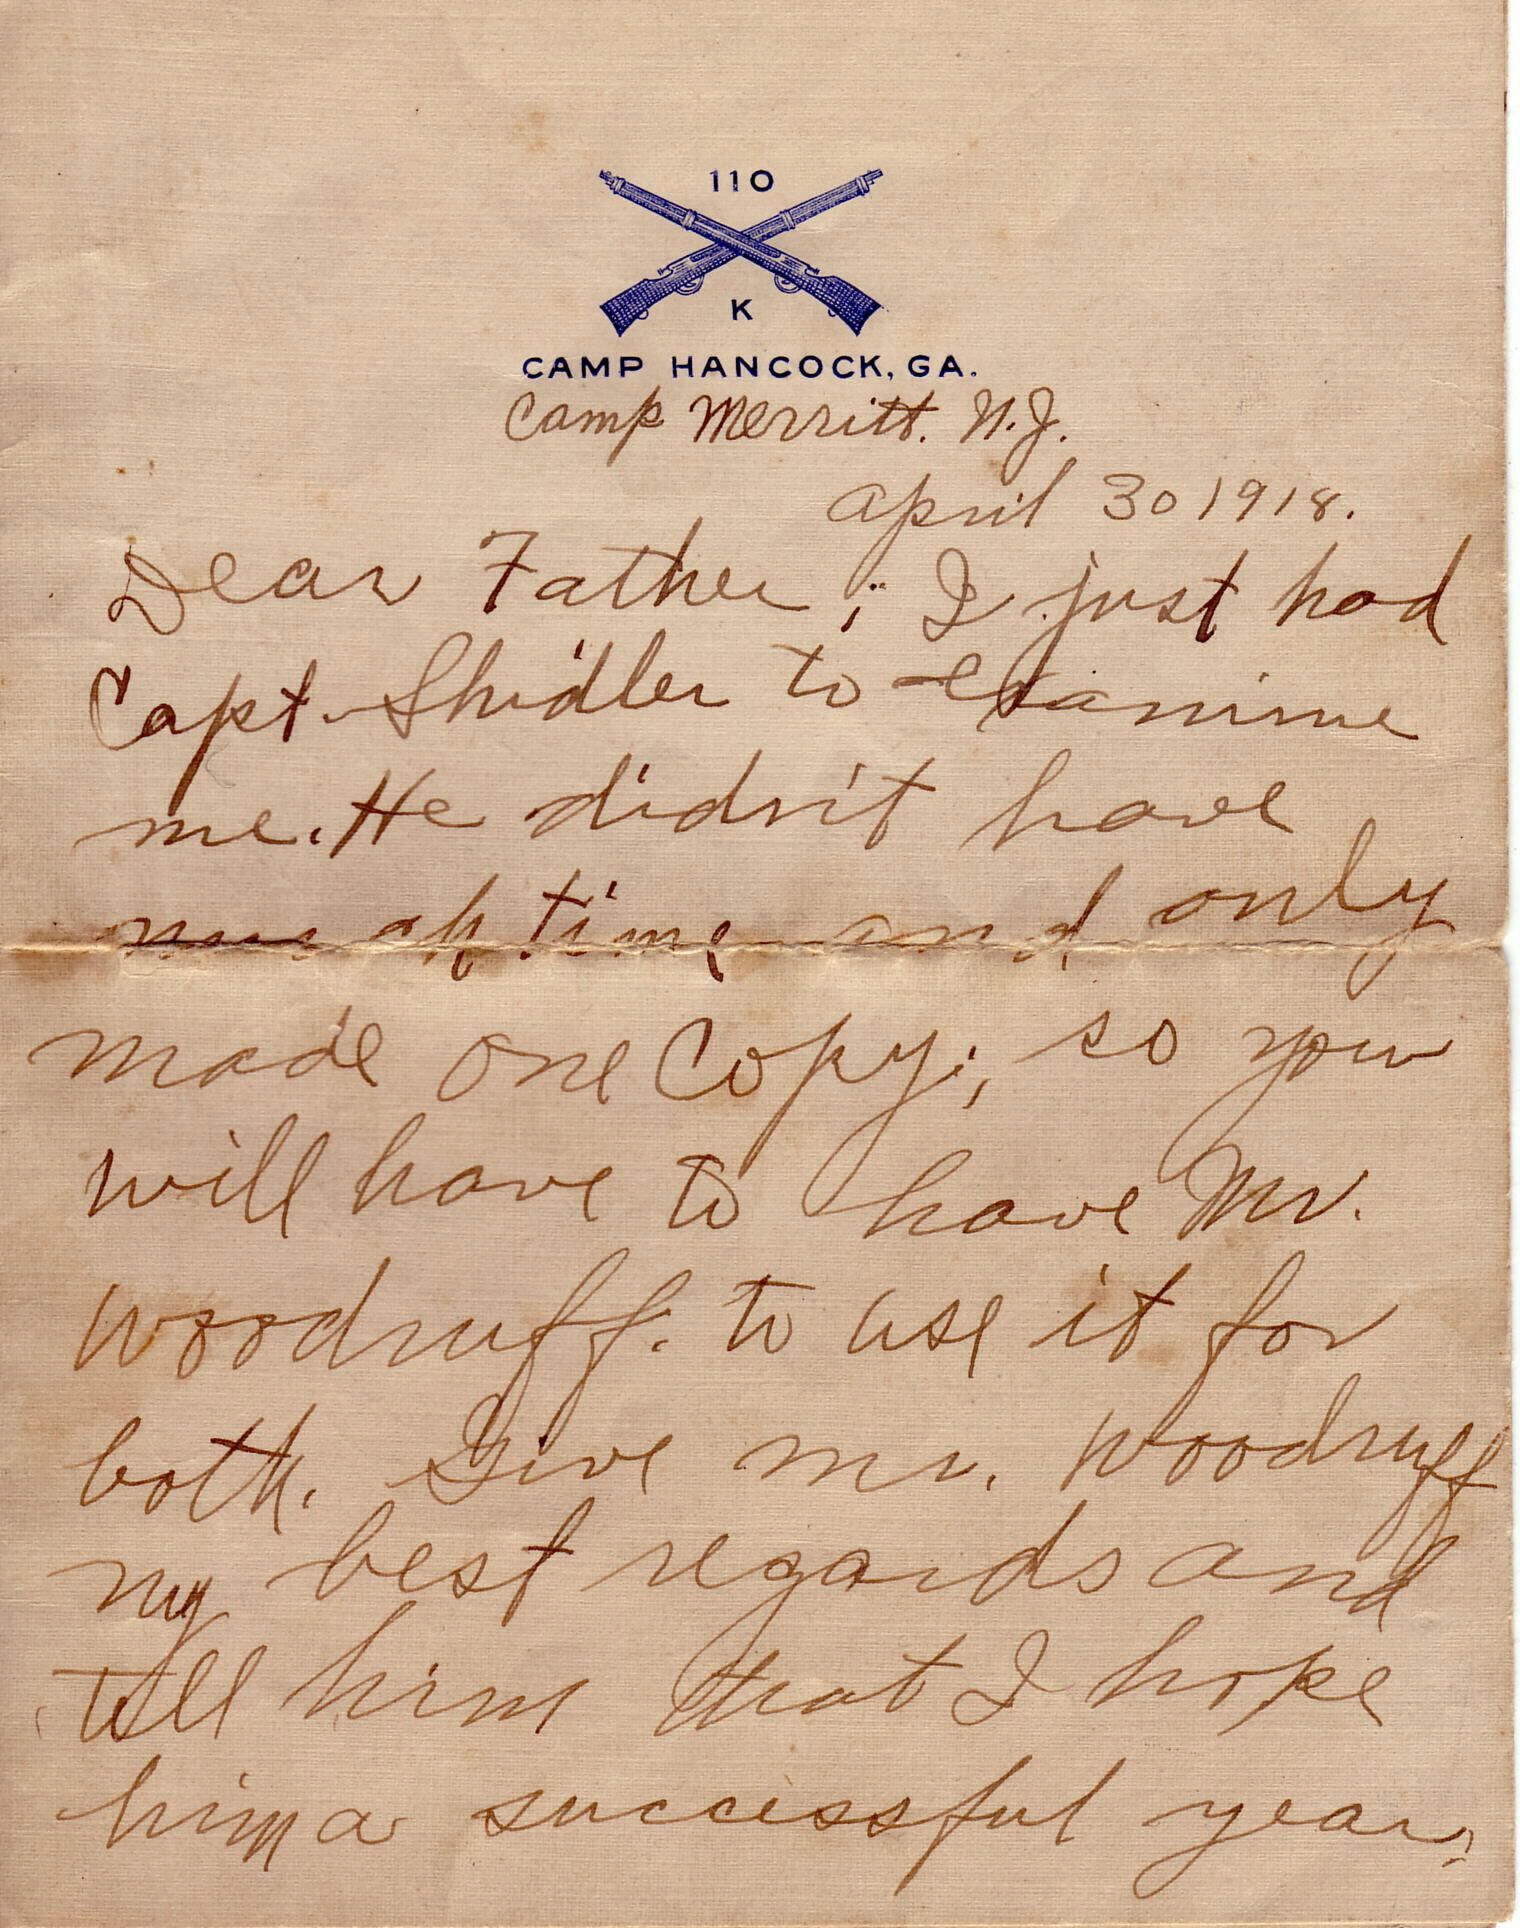 110
K
CAMP HANCOCK, GA.
Camp Merritt. N.J.
April 30 1918.
Dear Father; I just had
Capt. Shidler to examine
me. He didn't have
much time and only
made one Copy; so you
will have to have Mr.
Woodruff. to use it for
both. Give Mr. Woodruff
my best regards and
tell him that I hope
him a successful year.